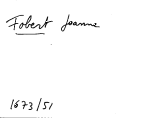 Fobert Jeanne
1673/51